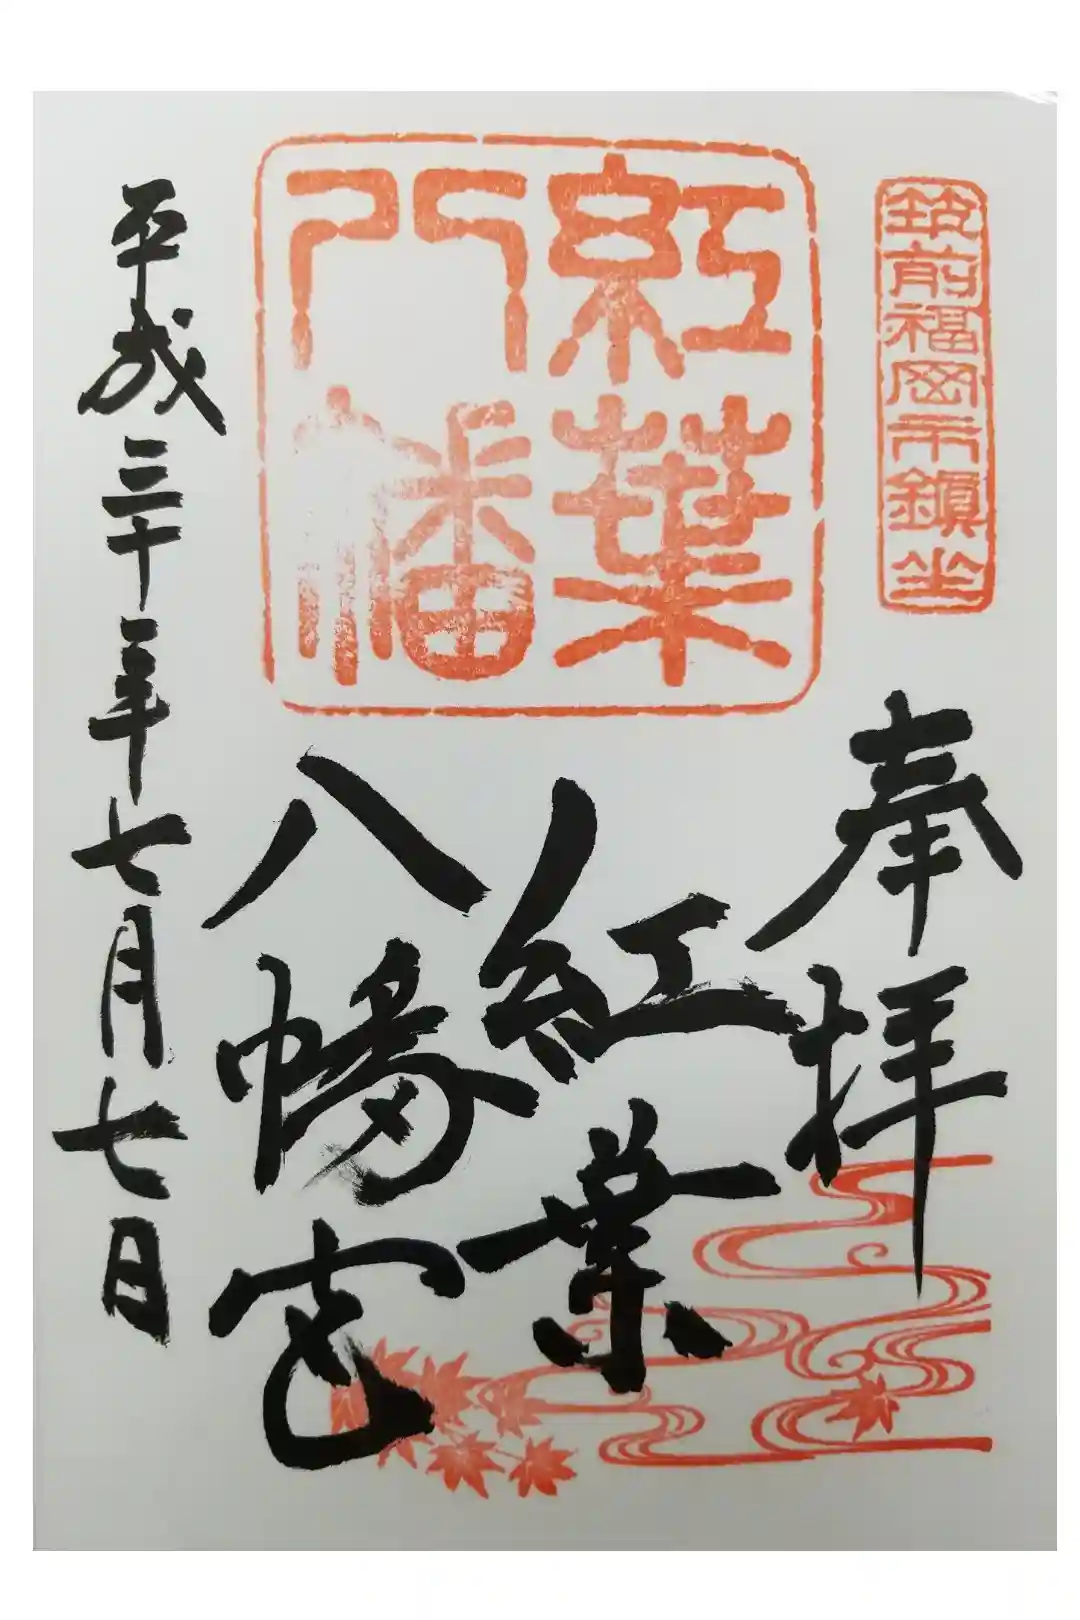 筑前福岡市鎮坐
奉拝
紅葉
八幡
紅葉
八幡宮
平成三十年七月七日